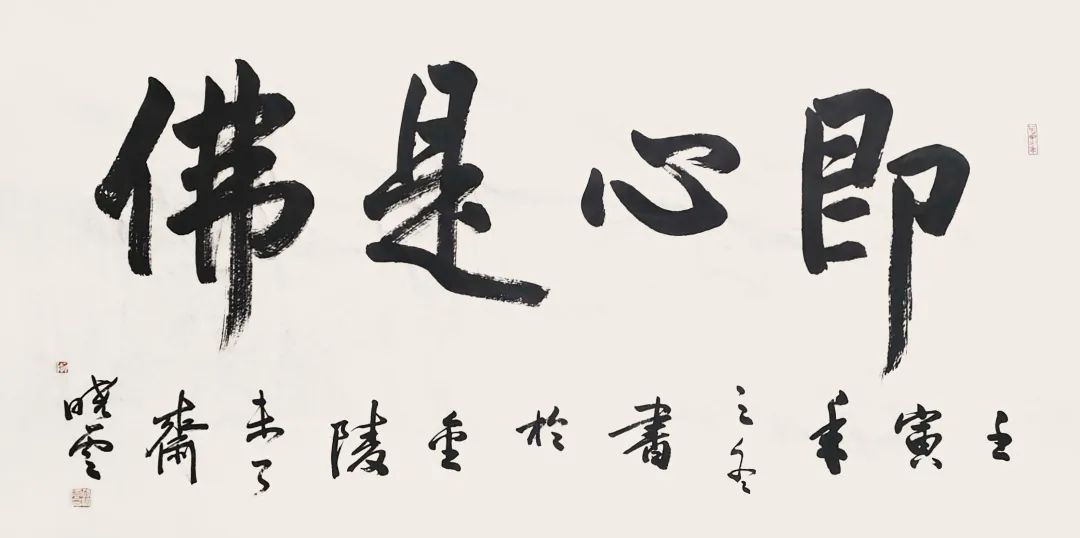 即心是佛
壬寅年之冬書於金陵未了齋曉雲